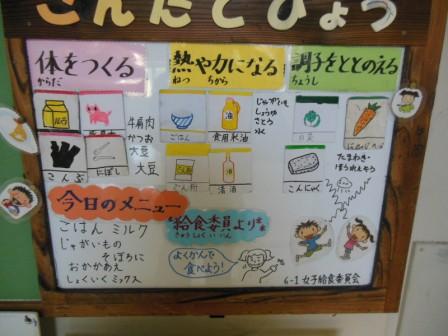 こんだてひょう
体をつくる
からだ
熱や力になる
ねつ ちから
調子をととのえる
ちょうし
牛肩肉
かつお
大豆
大豆
こんぶ
にぼし
ごはん
油
食用米油
じゃがいも
しょうゆ
さとう
清酒
白菜
こんにゃく
たまねぎ
ほうれんそう
今日のメニュー
ごはん ミルク
じゃがいもの
そぼろに
おかかあえ
しょくいくミックス
給食委員より
きゅうしょくいいん
よくかんで
食べよう!
6-1 女子給食委員会